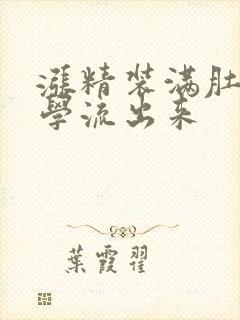 漲精装满肚
學流出来
葉霞翟